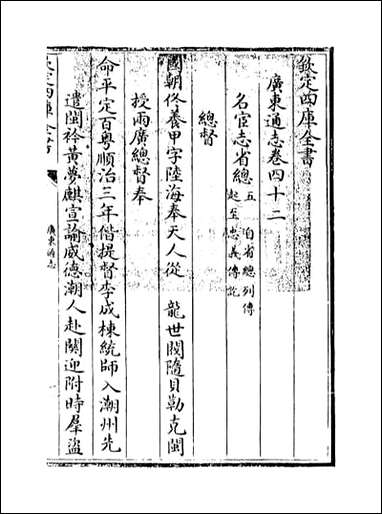 欽定四庫全書
廣東通志卷四十二
名宦志省總五 自省總列傳
起至忠義傳訖
總督
國朝佟養甲字陸海奉天人從 龍世閥隨貝勒克閩
授兩廣總督奉
命平定百粵順治三年偕提督李成棟統師入潮州先
遣閩衿黃夢麒宣諭威德潮人赴闕迎附時羣盜
欽定四庫全書
廣東通志